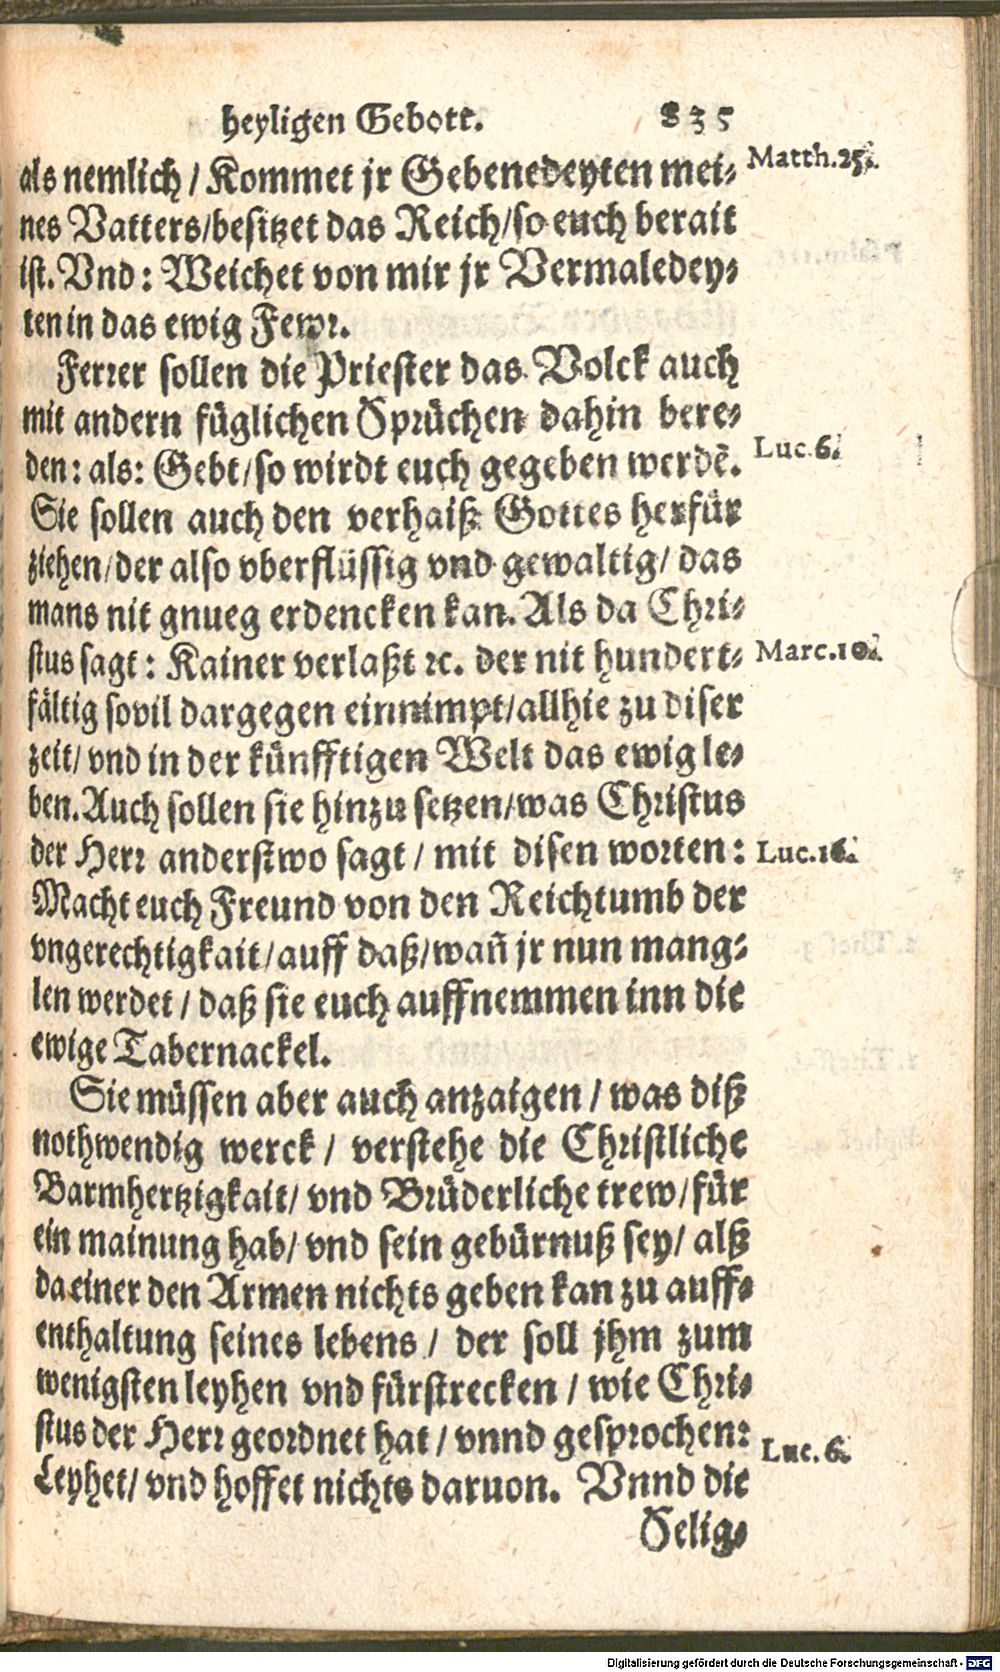 heyligen Gebott. 835
als nemlich / Kommet jr Gebenedeyten mei⸗ Matth.25.
nes Vatters/besitzet das Reich/so euch berait
ist. Vnd: Weichet von mir jr Vermaledey⸗
ten in das ewig Fewr.
Ferrer sollen die Priester das Volck auch
mit andern füglichen Sprüchen dahin bere⸗
den: als: Gebt/so wirdt euch gegeben werdẽ. Luc.6.
Sie sollen auch den verhaiß Gottes herfür
ziehen/der also vberflüssig vnd gewaltig/ das
mans nit gnueg erdencken kan. Als da Chri⸗
stus sagt: Kainer verlaßt ꝛc. der nit hundert⸗ Marc.10.
fältig sovil dargegen einnimpt/allhie zu diser
zeit/ vnd in der künfftigen Welt das ewig le⸗
ben. Auch sollen sie hinzu setzen/was Christus
der Herr anderstwo sagt / mit disen worten: Luc.16.
Macht euch Freund von den Reichtumb der
vngerechtigkait/auff daß/wañ jr nun mang⸗
len werdet / daß sie euch auffnemmen inn die
ewige Tabernackel.
Sie müssen aber auch anzaigen / was diß
nothwendig werck / verstehe die Christliche
Barmhertzigkait/ vnd Brüderliche trew/für
ein mainung hab/ vnd sein gebürnuß sey/ alß
da einer den Armen nichts geben kan zu auff⸗
enthaltung seines lebens / der soll jhm zum
wenigsten leyhen vnd fürstrecken / wie Chri⸗
stus der Herr geordnet hat / vnnd gesprochen: Luc.6.
Leyhet/ vnd hoffet nichts daruon. Vnnd die
Selig⸗
Digitalisierung gefördert durch die Deutsche Forschungsgemeinschaft - DFG